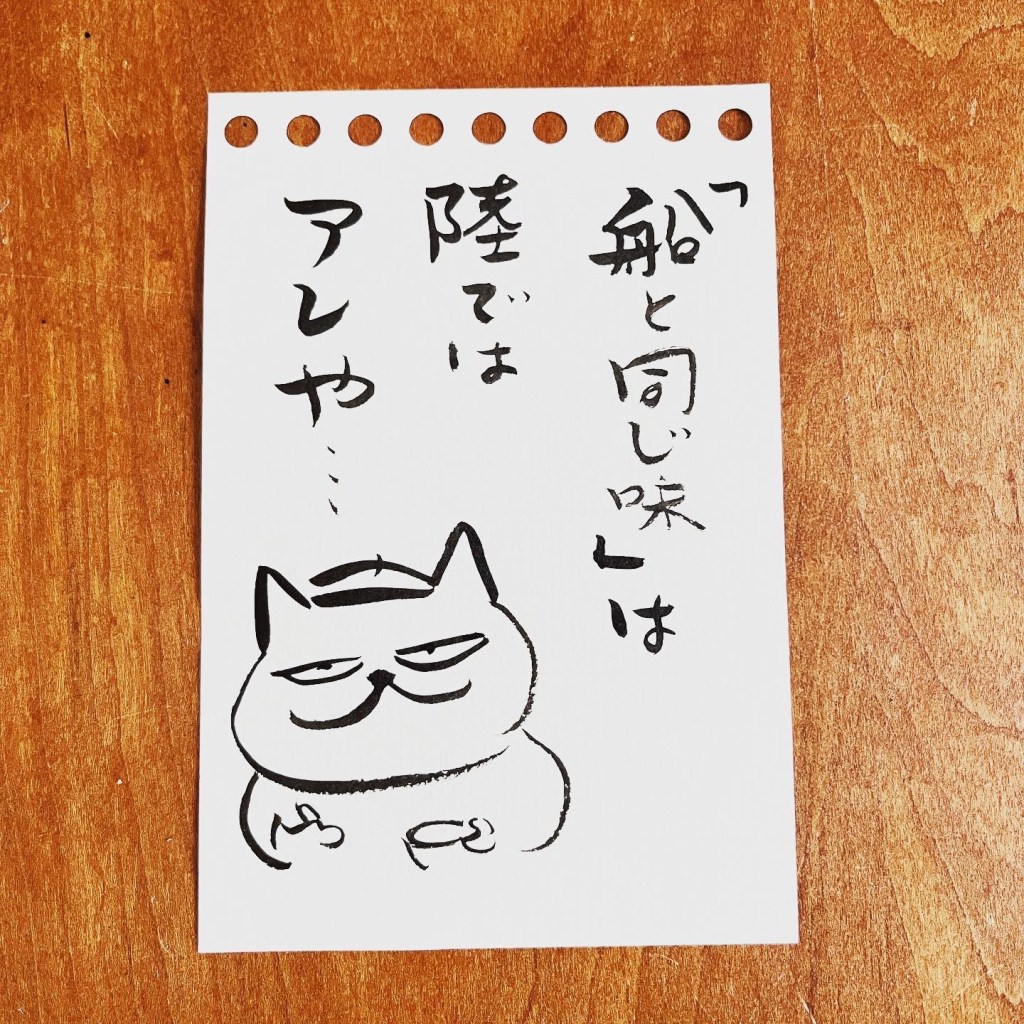 「船と同じ味」は
陸では
アレや…